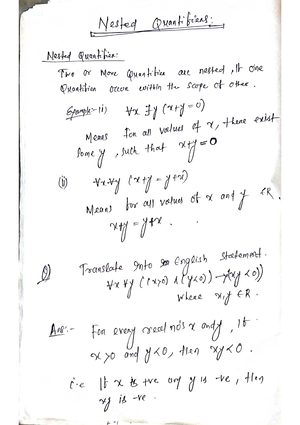 Nested Quantifiers:
Nested Quantifier:
Two or More Quantifier are nested, if one
Quantifier occur within the scope of other.
Example:- (i) ∀x ∃y (x+y=0)
Means for all values of x, there exist
some y, such that x+y=0
(ii) ∀x∀y (x+y=y+x)
Means for all values of x and y ∈R.
x+y=y+x.
Q) Translate into English Statement.
∀x ∀y ((x>0) ∧ (y<0)) → (xy<0))
where x,y ∈R.
Ans:- For every real no's x and y, if
x>0 and y<0, then xy<0.
i.e If x is +ve and y is -ve, then
xy is -ve.